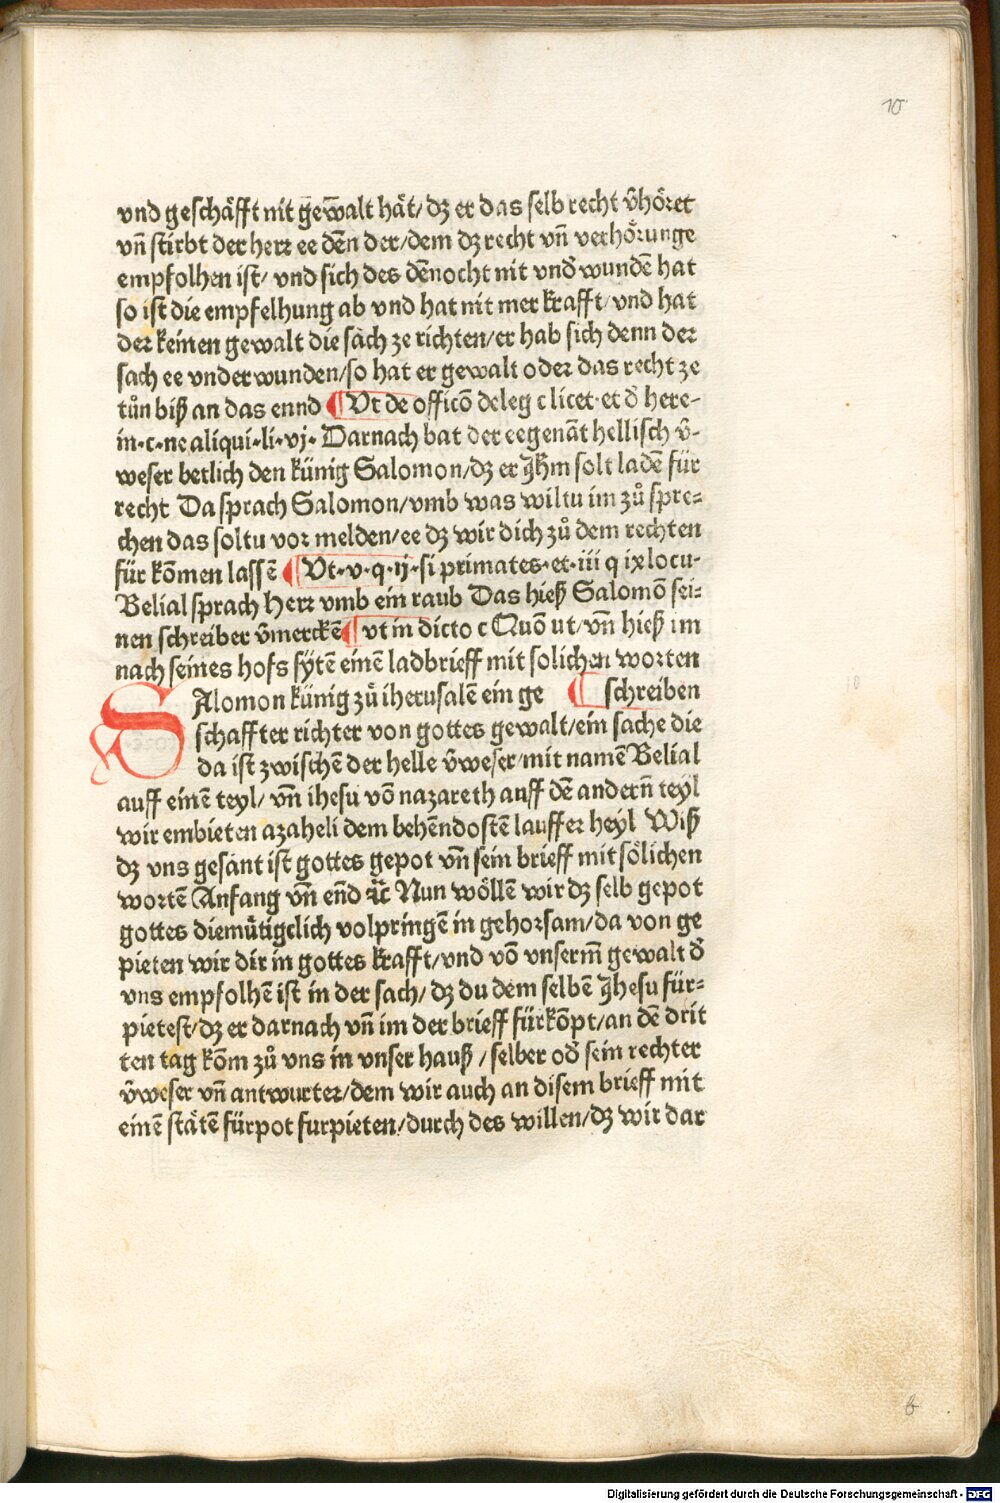 10
vnd geschäfft nit gewalt hät/ dz er das selb recht v̄höret
vn̄ stirbt der herr ee dēn der/dem dz recht vn̄ verhörunge
empfolhen ist/ vnd sich des dēnocht nit vnd̄wundē hat
so ist die empfelhung ab vnd hat nit mer krafft/ vnd hat
der keinen gewalt die sach ze richten/er hab sich denn der
sach ee vnderwunden/so hat er gewalt oder das recht ze
tůn biß an das ennd ¶ Vt de officō deleg c licet·et d̄ here-
in·c·ne aliqui·li·vj· Darnach bat der eegenāt hellisch v̄-
weser betlich den künig Salomon/dz er Jhm solt ladē für
recht Da sprach Salomon/vmb was wiltu im zů spre-
chen das soltu vor melden/ee dz wir dich zů dem rechten
für kōmen lassē ¶ Vt·v·q·ij·si primates·et·iii q ix locu-
Belial sprach Herr vmb ein raub Das hieß Salomō sei-
nen schreiber v̄merckē ¶ vt in dicto c Quō ut/vn̄ hieß im
nach seines hofs sÿtē einē ladbrieff mit solichen worten
SAlomon künig zů iherusalē ein ge ¶ schreiben
schaffter richter von gottes gewalt/ein sache die
da ist zwischē der helle v̄weser/mit namē Belial
auff einē teyl/ vn̄ ihesu vō nazareth auff dē andern̄ teyl
wir embieten azaheli dem behēndostē lauffer heyl Wiß
dz vns gesant ist gottes gepot vn̄ sein brieff mit sölichen
wortē Anfang vn̄ end ꝛc̄ Nun wöllē wir dz selb gepot
gottes diemütigclich volpringē in gehorsam/da von ge
pieten wir dir in gottes krafft/vnd vō vnserm̄ gewalt d̄
vns empfolhē ist in der sach/ dz du dem selbē Jhesu für-
pietest/dz er darnach vn̄ im der brieff fürkōpt/an dē drit
ten tag kōm zů vns in vnser hauß / selber od̄ sein rechter
v̄weser vn̄ antwurter/dem wir auch an disem brieff mit
einē stätē fürpot furpieten/durch des willen/dz wir dar
b
Digitalisierung gefördert durch die Deutsche Forschungsgemeinschaft - DFG